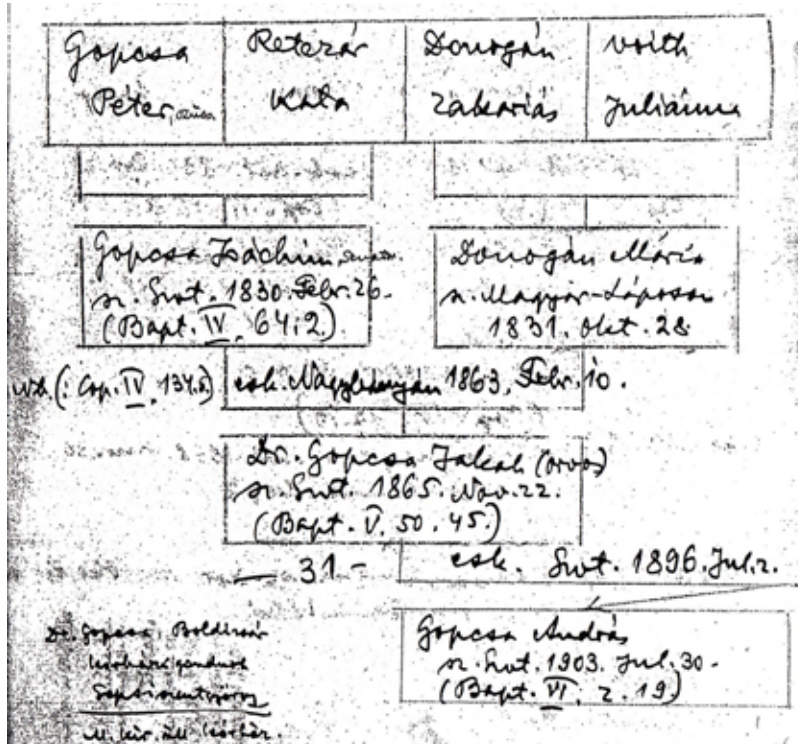 Gopcsa Péter,
Retezár Kata
Donogán Zakariás
Voith Juliánna
Gopcsa Joáchim,
n. Szvt. 1830. Febr. 26.
(Bapt. IV. 64.2.)
Donogán Mária
n. Magyar-Láposon
1831. Okt. 28
(: Cop. IV. 134.) esk. Nagybányán 1863. Febr. 10.
Dr. Gopcsa Jakab (orvos)
n. Szvt. 1865. Nov. 22.
(Bapt. V. 50. 45.)
— 31 -
esk. Szvt. 1896. Jul. 2.
Gopcsa András
n. Szvt. 1903. Jul. 30.
(Bapt. VI. 2. 19)
Dr. Gopcsa Boldizsár